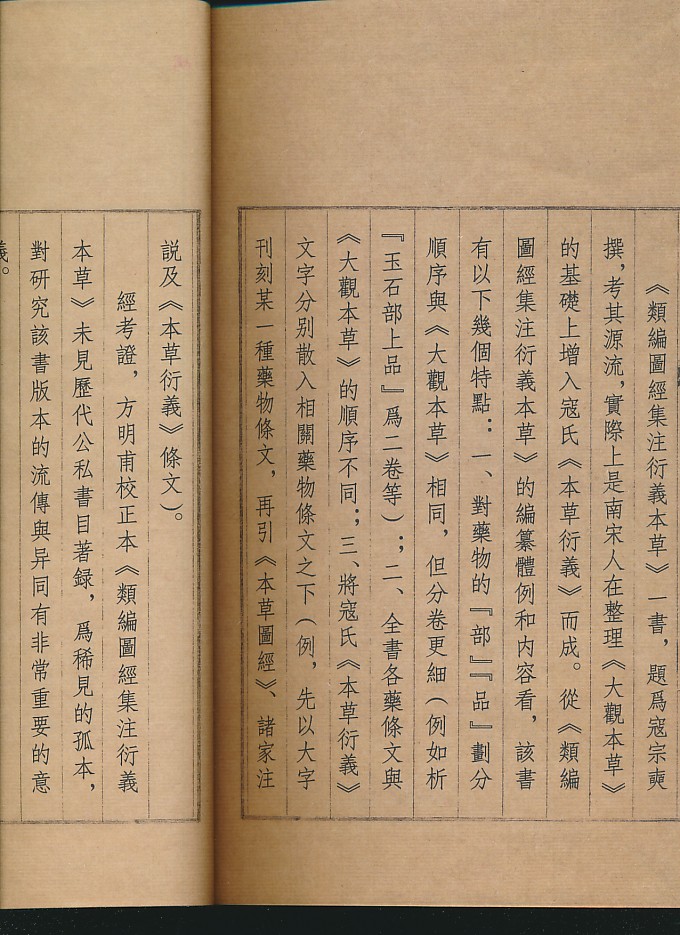 《類編圖經集注衍義本草》一書，題爲寇宗奭
撰，考其源流，實際上是南宋人在整理《大觀本草》
的基礎上增入寇氏《本草衍義》而成。從《類編
圖經集注衍義本草》的編纂體例和内容看，該書
有以下幾個特點：一、對藥物的『部』『品』劃分
順序與《大觀本草》相同，但分卷更細（例如析
『玉石部上品』爲二卷等）；二、全書各藥條文與
《大觀本草》的順序不同；三、將寇氏《本草衍義》
文字分别散入相關藥物條文之下（例，先以大字
刊刻某一種藥物條文，再引《本草圖經》、諸家注
説及《本草衍義》條文）。
經考證，方明甫校正本《類編圖經集注衍義
本草》未見歷代公私書目著録，爲稀見的孤本，
對研究該書版本的流傳與异同有非常重要的意
義。